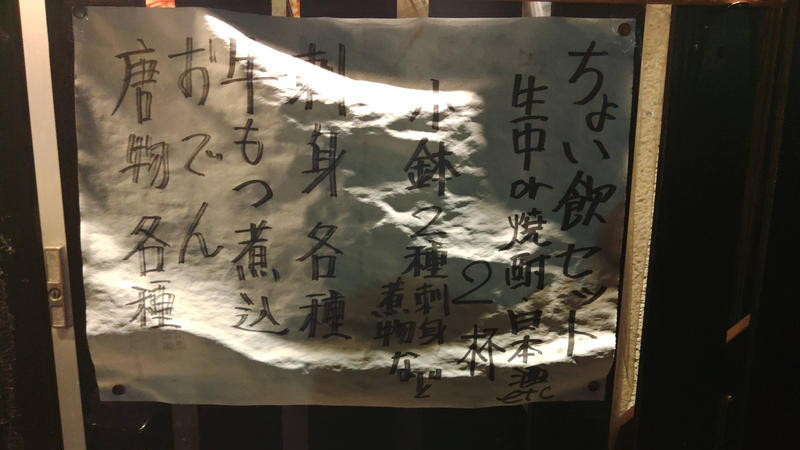 ちょい飲セット
生中or焼酎・日本酒etc
2杯
小鉢2種
刺身
煮物など
刺身各種
牛もつ煮込
おでん
唐物各種